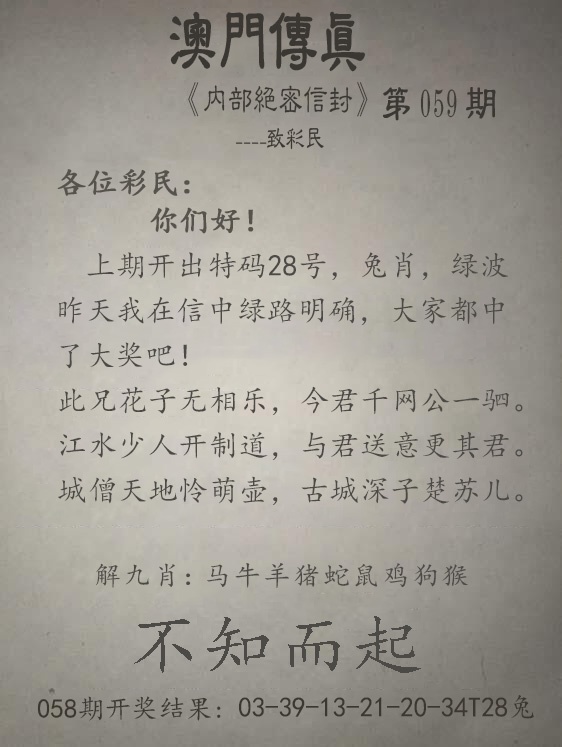 澳門傳真
《内部絕密信封》第059期
----致彩民
各位彩民:
你们好!
上期开出特码28号，兔肖，绿波
昨天我在信中绿路明确，大家都中
了大奖吧!
此兄花子无相乐，今君千网公一驷。
江水少人开制道，与君送意更其君。
城僧天地怜萌壶，古城深子楚苏儿。
解九肖:马牛羊猪蛇鼠鸡狗猴
不知而起
058期开奖结果:03-39-13-21-20-34T28兔